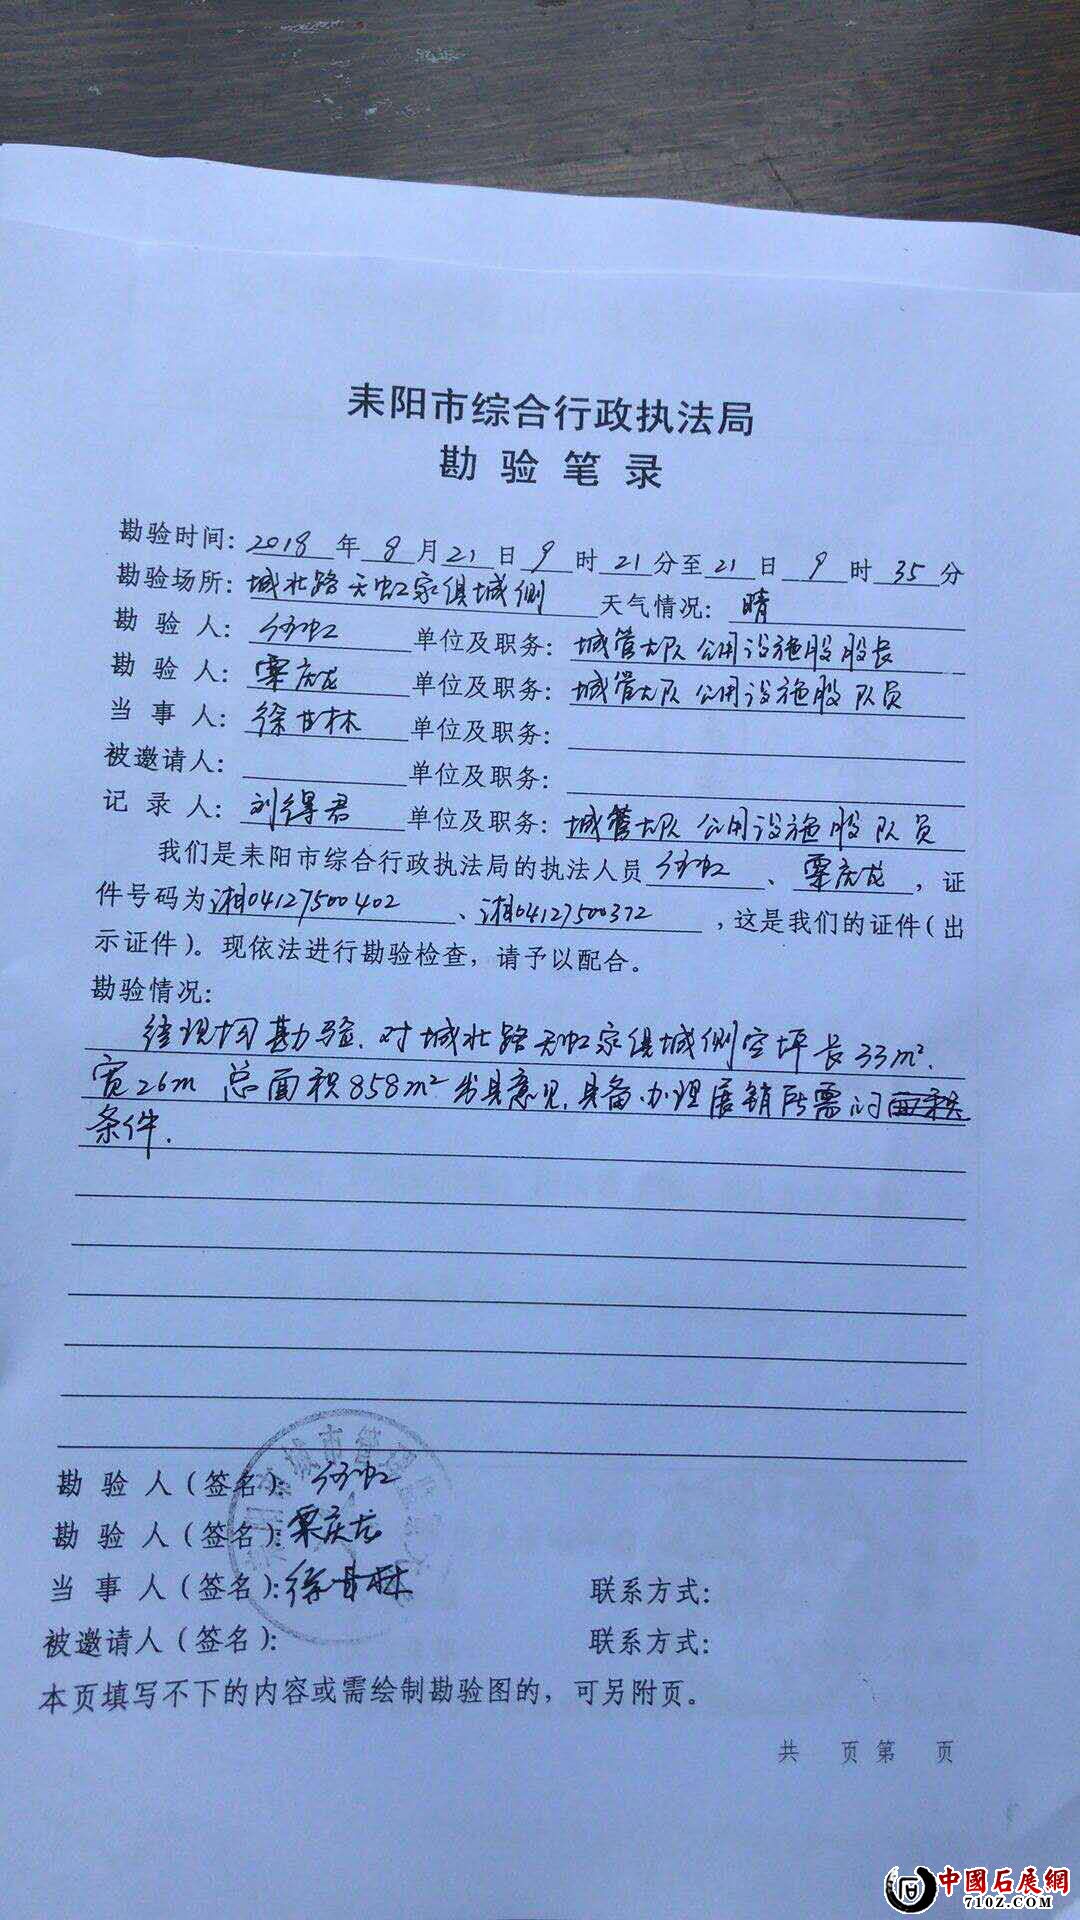 耒阳市综合行政执法局
勘验笔录
勘验时间：2018年8月21日9时21分至21日9时35分
勘验场所：城北路天虹家俱城侧 天气情况：晴
勘验人：伍虹 单位及职务：城管大队公用设施股股长
勘验人：栗庆龙 单位及职务：城管大队公用设施股队员
当事人：徐甘林 单位及职务：
被邀请人： 单位及职务：
记录人：刘得君 单位及职务：城管大队公用设施股队员
我们是耒阳市综合行政执法局的执法人员伍虹、栗庆龙，证
件号码为湘04127500402、湘04127500372，这是我们的证件（出
示证件）。现依法进行勘验检查，请予以配合。
勘验情况：
经现场勘验，对城北路天虹家俱城侧空坪长33m²，
宽26m 总面积858m² 出具意见，具备办理展销所需的面积
条件．
勘验人（签名）：伍虹
勘验人（签名）：栗庆龙
当事人（签名）：徐甘林 联系方式：
被邀请人（签名）： 联系方式：
本页填写不下的内容或需绘制勘验图的，可另附页。
共 页第 页
中國石展網
710Z.COM